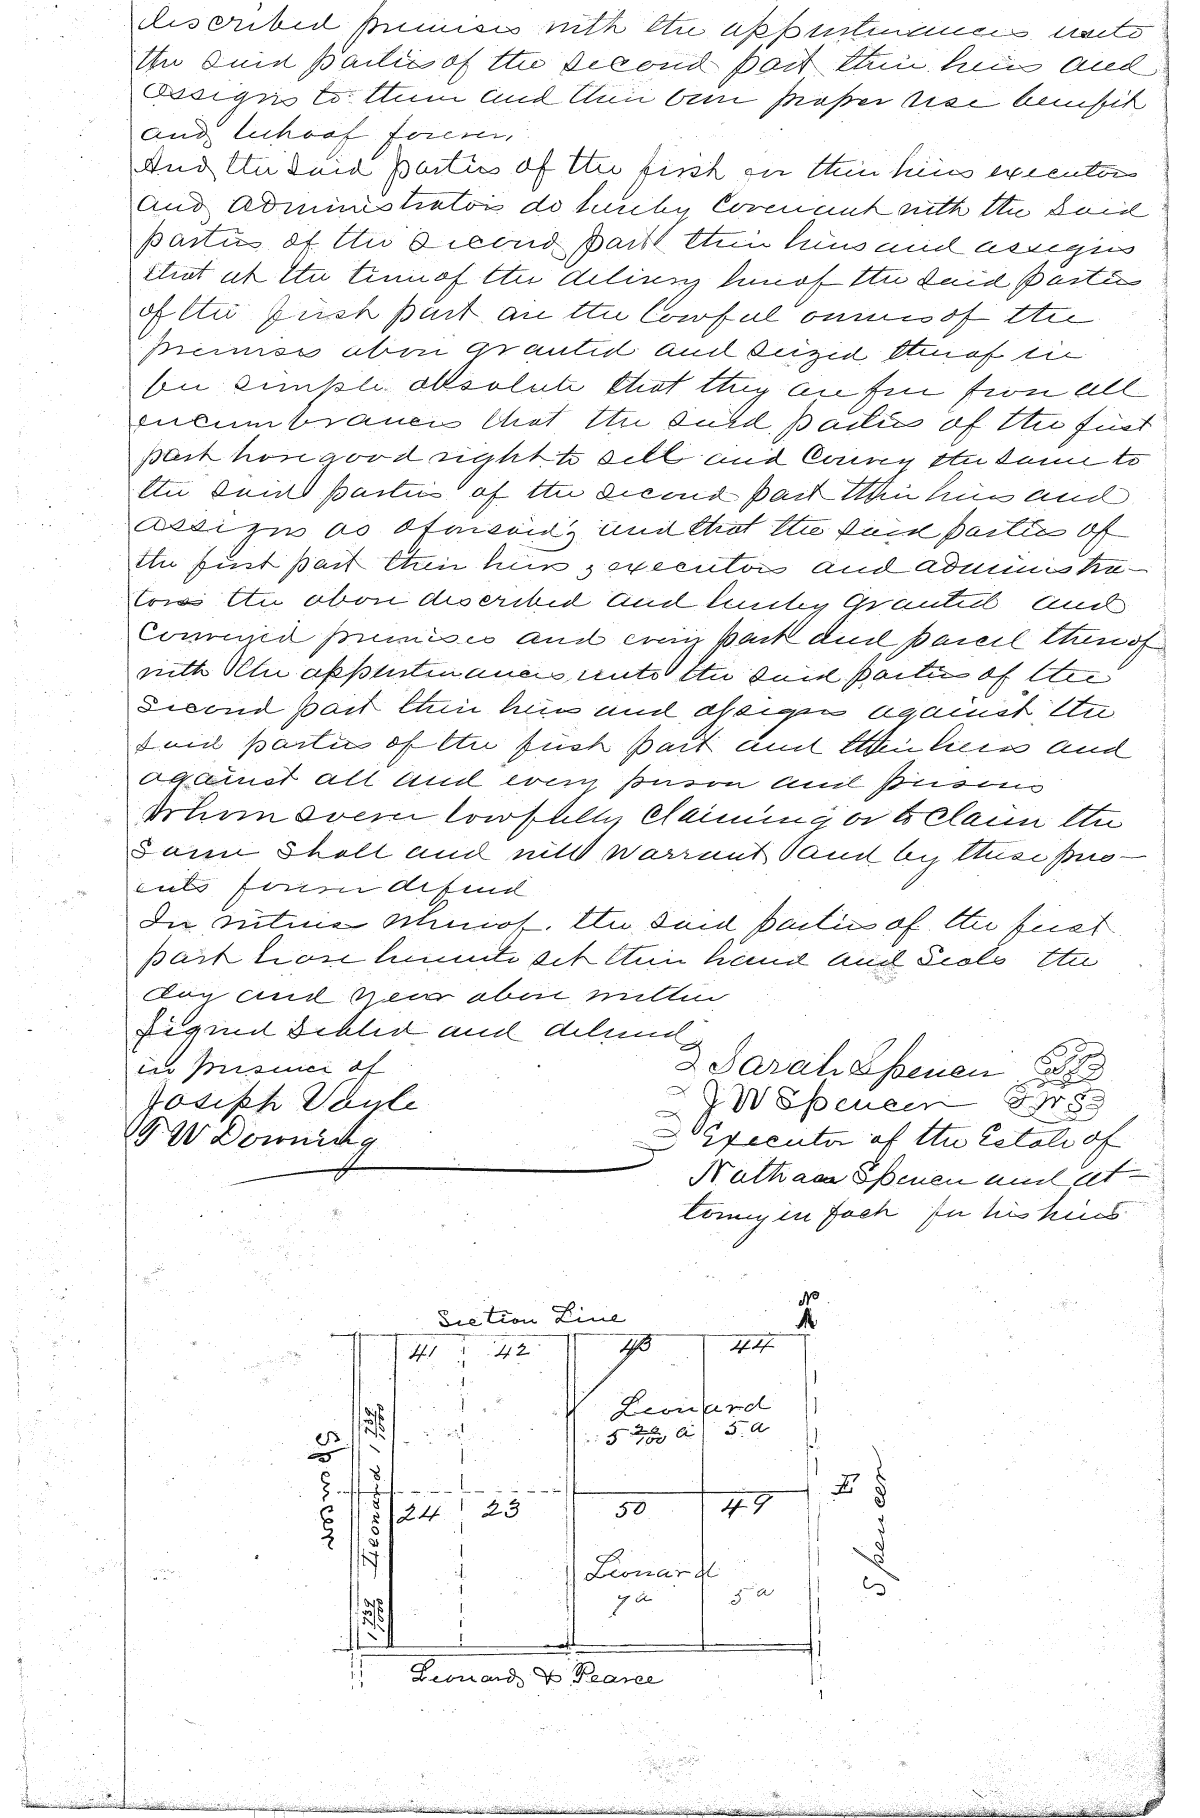 described premises with the appurtenances unto
the said parties of the second part their heirs and
assigns to them and their own proper use benefit
and behoof forever.
And the said parties of the first for their heirs executors
and administrators do hereby Covenant with the said
parties of the second part their heirs and assigns
that at the time of the delivery hereof the said parties
of the first part are the lawful owners of the
premises above granted and seized thereof in
fee simple absolute that they are free from all
encumbrances that the said parties of the first
part have good right to sell and Convey the same to
the said parties of the second part their heirs and
assigns as aforesaid; and that the said parties of
the first part their heirs, executors and administra-
tors the above described and hereby granted and
Conveyed premises and every part and parcel thereof
with the appurtenances unto the said parties of the
Second part their heirs and assigns against the
said parties of the first part and their heirs and
against all and every person and persons
Whomsoever lawfully Claiming or to Claim the
Same Shall and will Warrant and by these pres-
ents forever defend
In witness whereof. the said parties of the first
part have hereunto set their hand and Seals the
day and year above written
Signed Sealed and delivered
in presence of
Sarah Spencer
Joseph Vayle
J W Spencer J W S
T W Downing
Executor of the Estate of
Nathan Spencer and at-
torney in fact for his heirs
Section Line
No
41 42 43 44
Leonard
5 20/100 a 5 a
Leonard
E
Spencer
24 23 50 49
Leonard
7 a 5 a
Leonard & Pearce